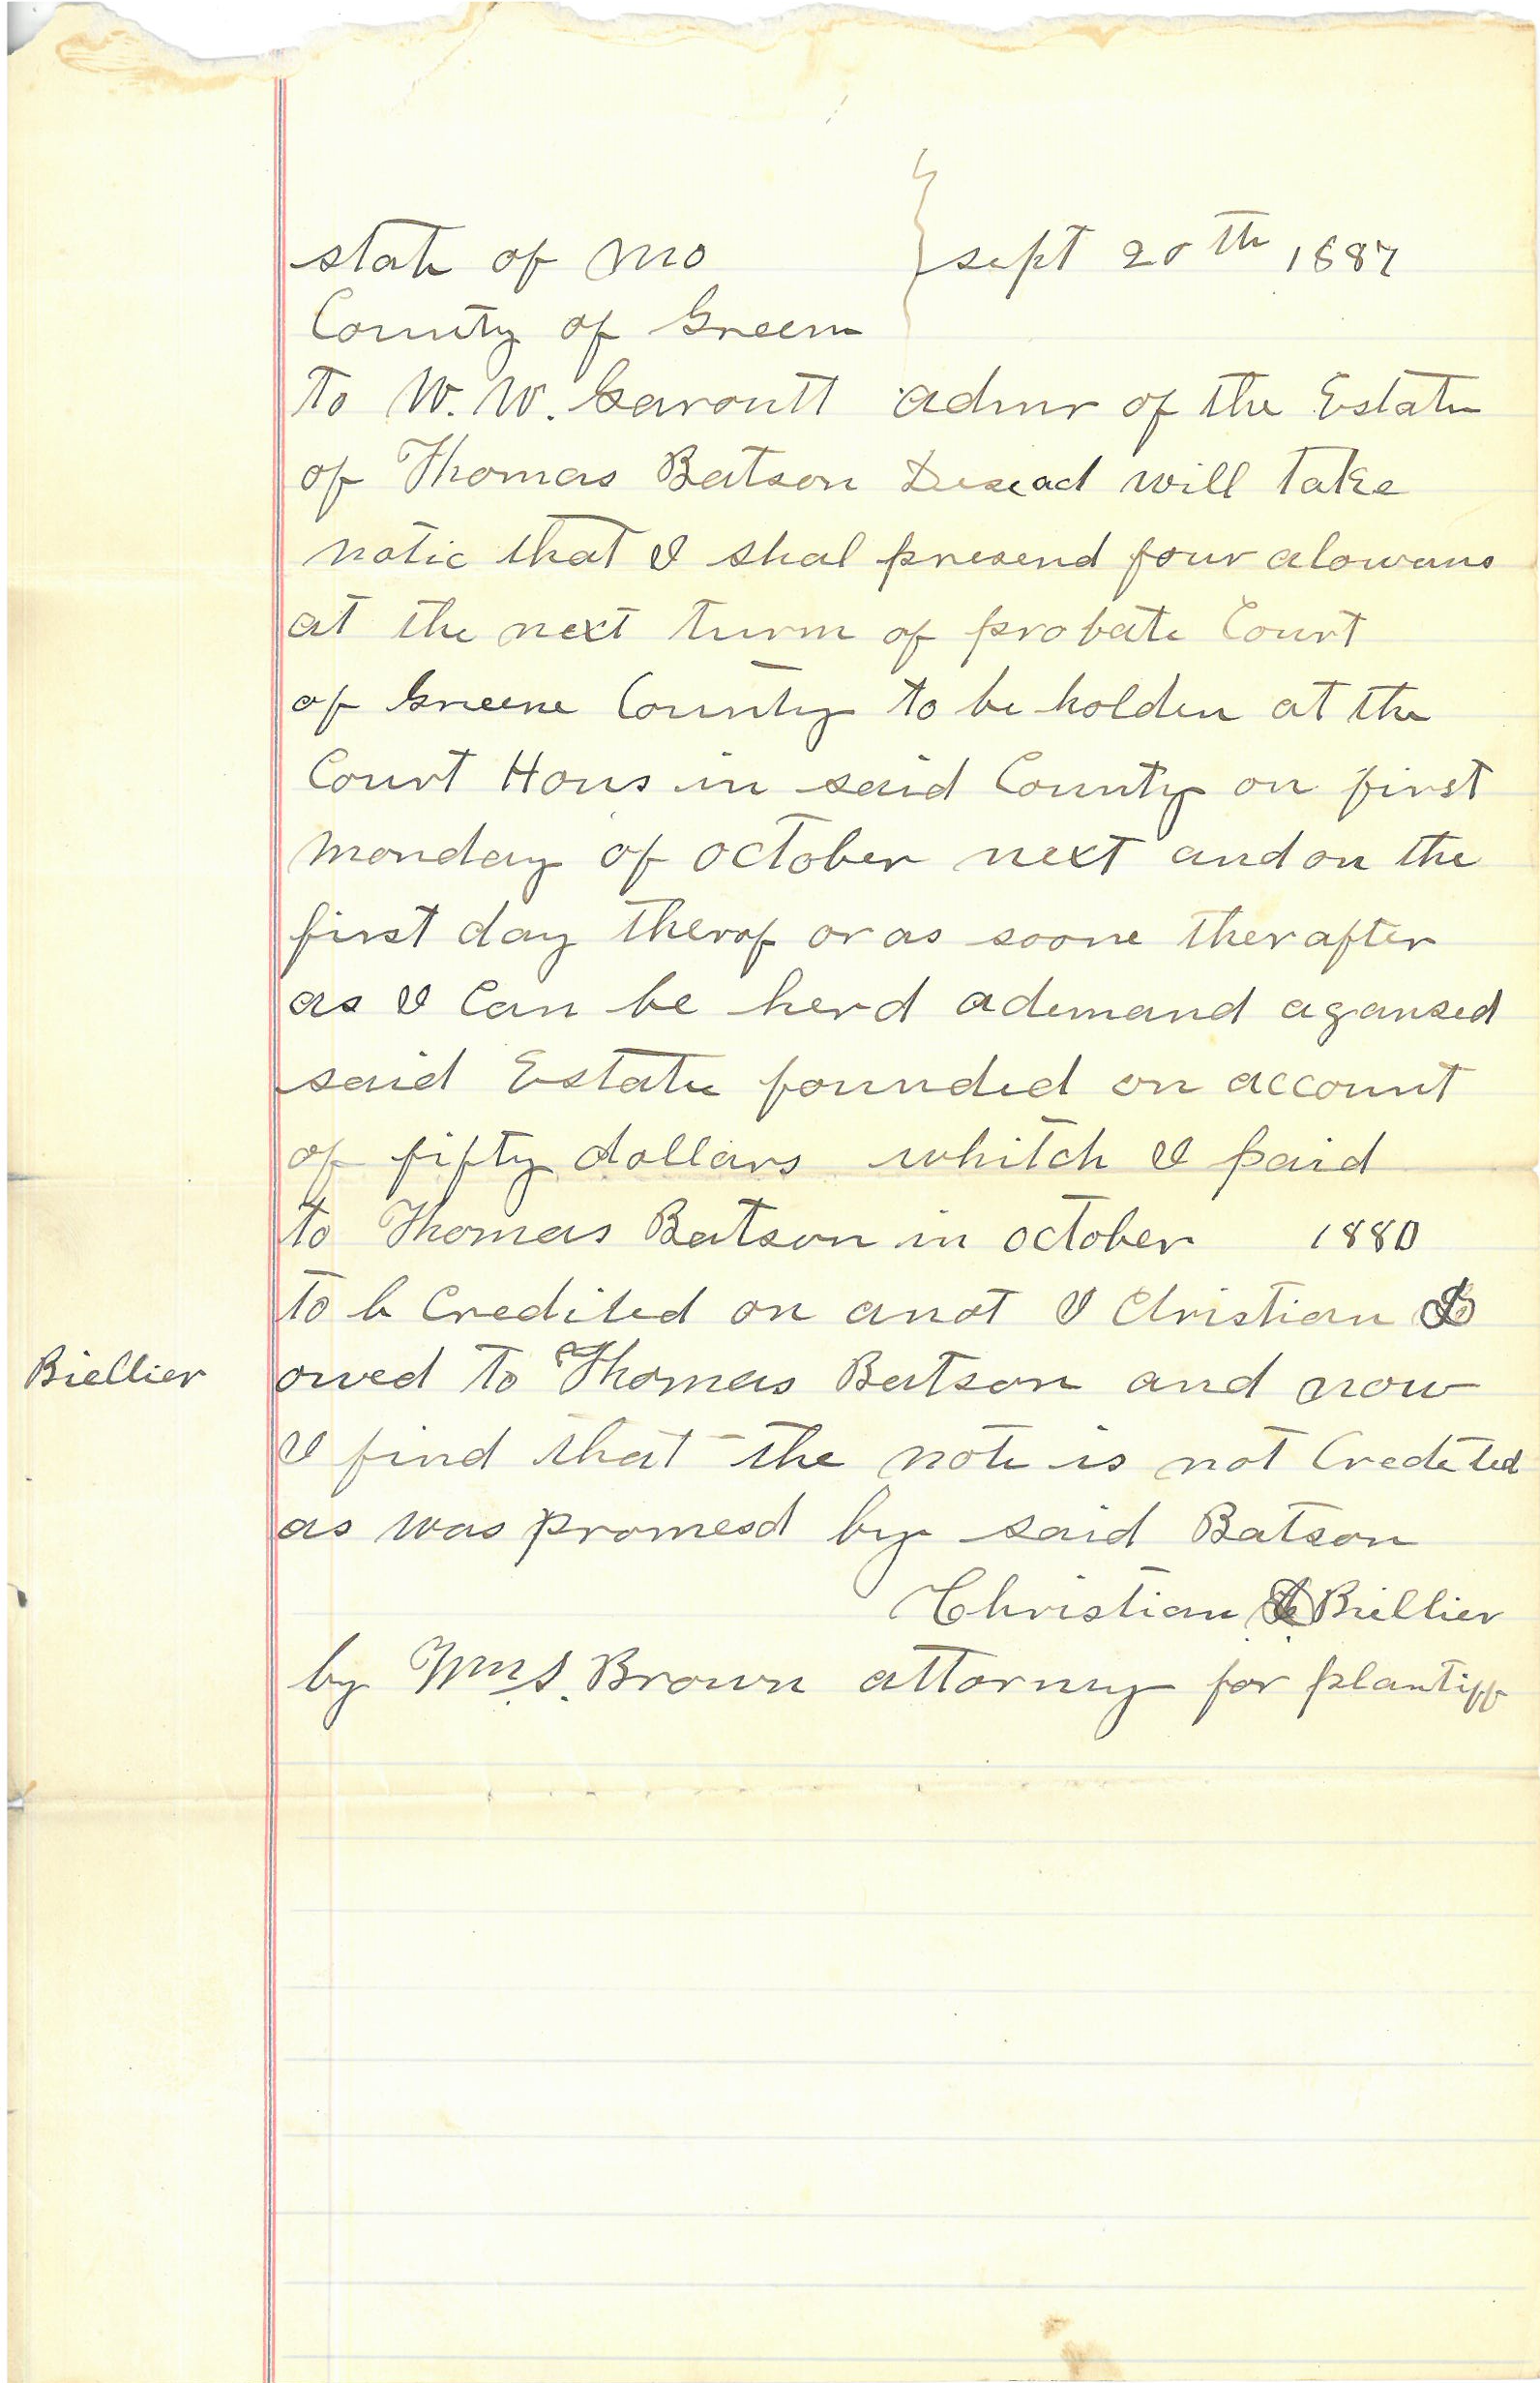 state of Mo } sept 20th 1887
County of Greene
to W. W. Garoutt admr of the Estate
of Thomas Batson Desead will take
notic that I shal presend four alowans
at the next turm of probate Court
of Greene County to be holden at the
Court Hous in said County on first
monday of october next and on the
first day therof or as soone therafter
as I Can be herd a demand agansed
said Estate founded on account
of fifty dollars whitch I paid
to Thomas Batson in october 1880
to b Credited on a not I Christian
Biellier owed to Thomas Batson and now
I find that the note is not Credeted
as was promesd by said Batson
Christian Biellier
by Wm S. Brown attorney for plantiff